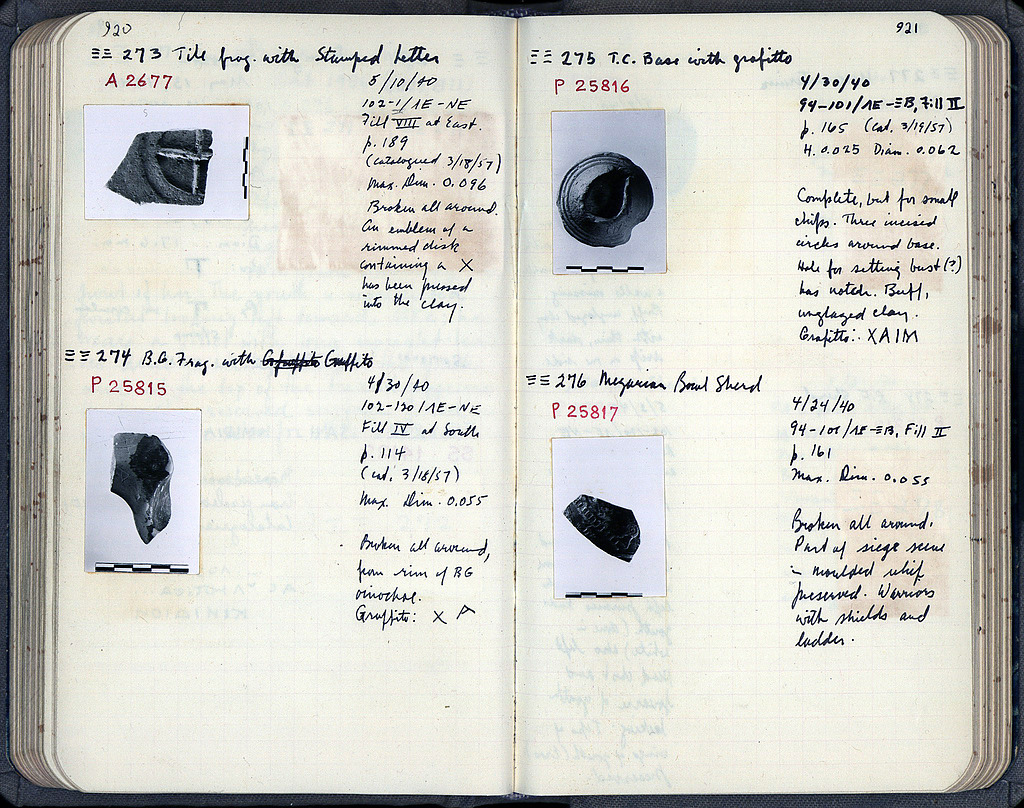 920
ΞΞ 273 Tile frag. with Stamped Letter
A 2677
5/10/40
102-1/ΛE-NE
Fill VIII at East.
p. 189
(catalogued 3/18/57)
Max. Dim. 0.096
Broken all around.
An emblem of a
rimmed disk
containing a X
has been pressed
into the clay.
ΞΞ 274 B.G. Frag. with Graffito
P 25815
4/30/40
102-120/ΛE-NE
Fill IV at South
p. 114
(cat. 3/18/57)
Max. Dim. 0.055
Broken all around,
from rim of BG
oinochoe.
Graffito: X A
921
ΞΞ 275 T.C. Base with grafitto
P 25816
4/30/40
94-101/ΛE-ΞB, Fill II
p. 165 (Cat. 3/19/57)
H. 0.025 Diam. 0.062
Complete, but for small
chips. Three incised
circles around base.
Hole for setting bust(?)
has notch. Buff,
unglazed clay.
Grafitto: XAIM
ΞΞ 276 Megarian Bowl Sherd
P 25817
4/24/40
94-101/ΛE-ΞB, Fill II
p. 161
Max. Dim. 0.055
Broken all around.
Part of siege scene
in moulded relief
preserved. Warriors
with shields and
ladder.